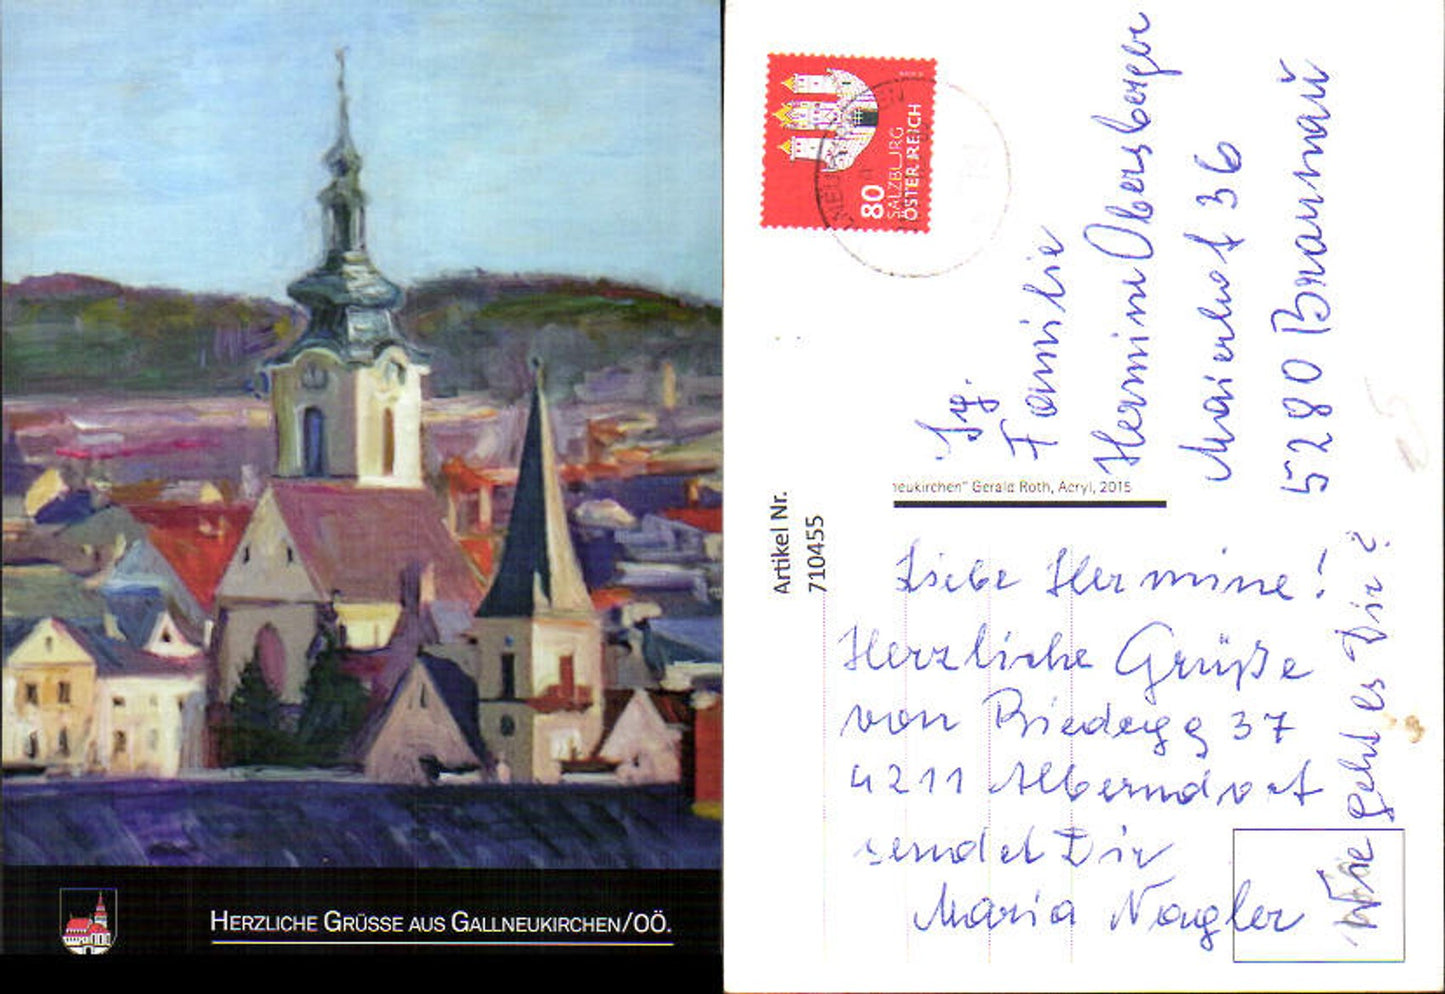 HERZLICHE GRÜSSE AUS GALLNEUKIRCHEN/OÖ.
80
SALZBURG
ÖSTERREICH
Familie
Hermine Obersberger
Marienhof 36
5280 Braunau
neukirchen" Gerald Roth, Acryl, 2015
Artikel Nr.
710455
Liebe Hermine!
Herzliche Grüße
von Riedegg 37
4211 Alberndorf
sendet Dir
Maria Nagler
Wie geht es Dir?